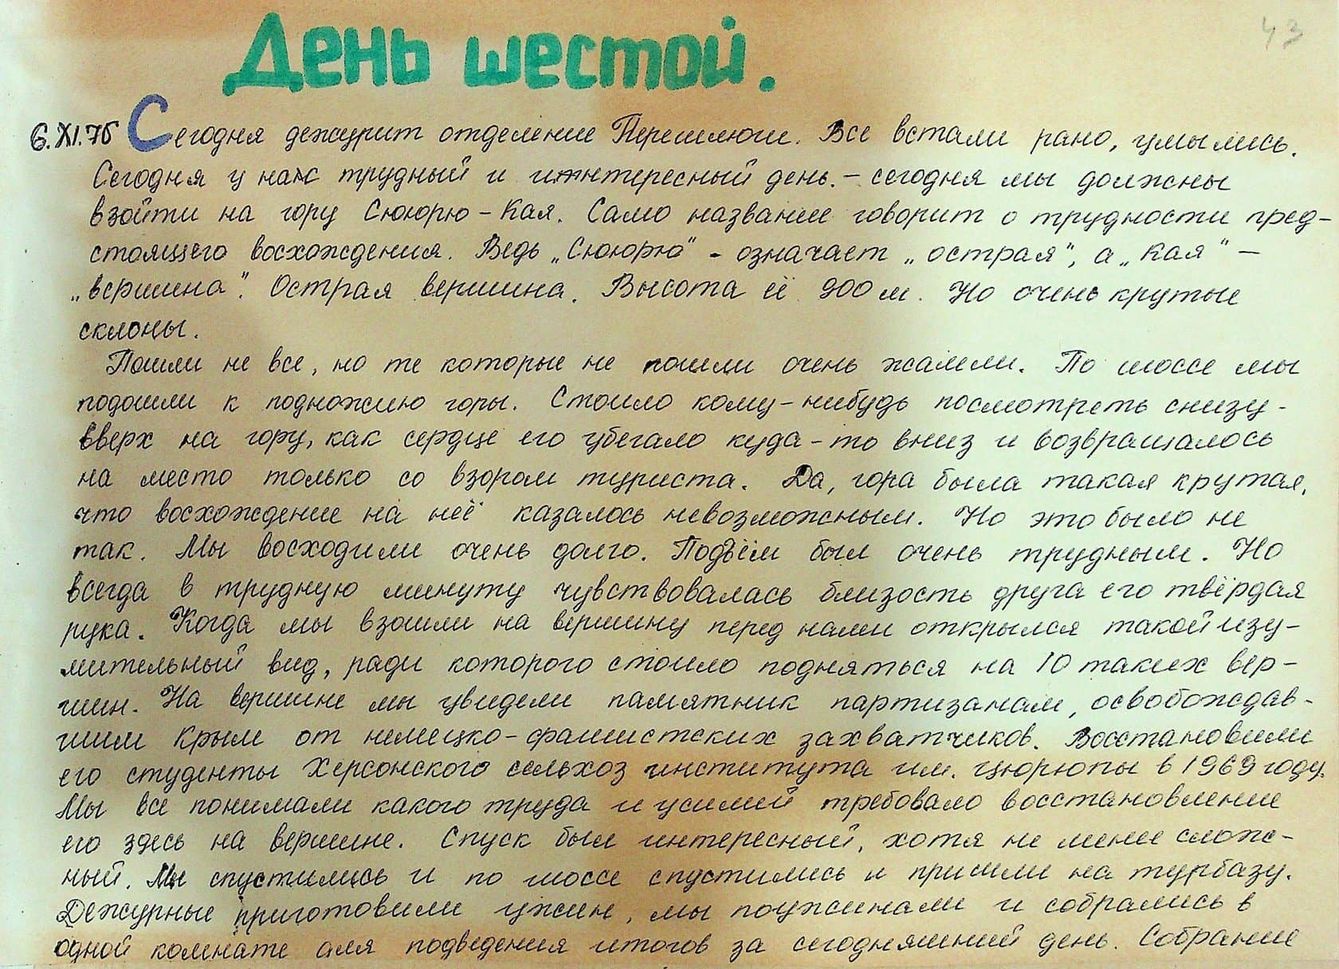 43
День шестой.
6.XI.76 Сегодня дежурит отделение Перешлюги. Все встали рано, умылись.
Сегодня у нас трудный и интересный день. – сегодня мы должны
взойти на гору Сююрю-Кая. Само название говорит о трудности пред-
стоящего восхождения. Ведь „Сююрю" - означает „острая", а „Кая" –
„вершина". Острая вершина. Высота её 900 м. Но очень крутые
склоны.
Пошли не все, но те которые не пошли очень жалели. По шоссе мы
подошли к подножию горы. Стоило кому-нибудь посмотреть снизу-
вверх на гору, как сердце его убегало куда-то вниз и возвращалось
на место только со взором туриста. Да, гора была такая крутая,
что восхождение на неё казалось невозможным. Но это было не
так. Мы восходили очень долго. Подъём был очень трудным. Но
всегда в трудную минуту чувствовалась близость друга его твёрдая
рука. Когда мы взошли на вершину перед нами открылся такой изу-
мительный вид, ради которого стоило подняться на 10 таких вер-
шин. На вершине мы увидели памятник партизанам, освобождав-
шим Крым от немецко-фашистских захватчиков. Восстановили
его студенты Херсонского сельхоз института им. Цюрюпы в 1969 году.
Мы все понимали какого труда и усилий требовало восстановление
его здесь на вершине. Спуск был интересный, хотя не менее слож-
ный. Мы спустились и по шоссе спустились и пришли на турбазу.
Дежурные приготовили ужин, мы поужинали и собрались в
одной комнате для подведения итогов за сегодняшний день. Собрание